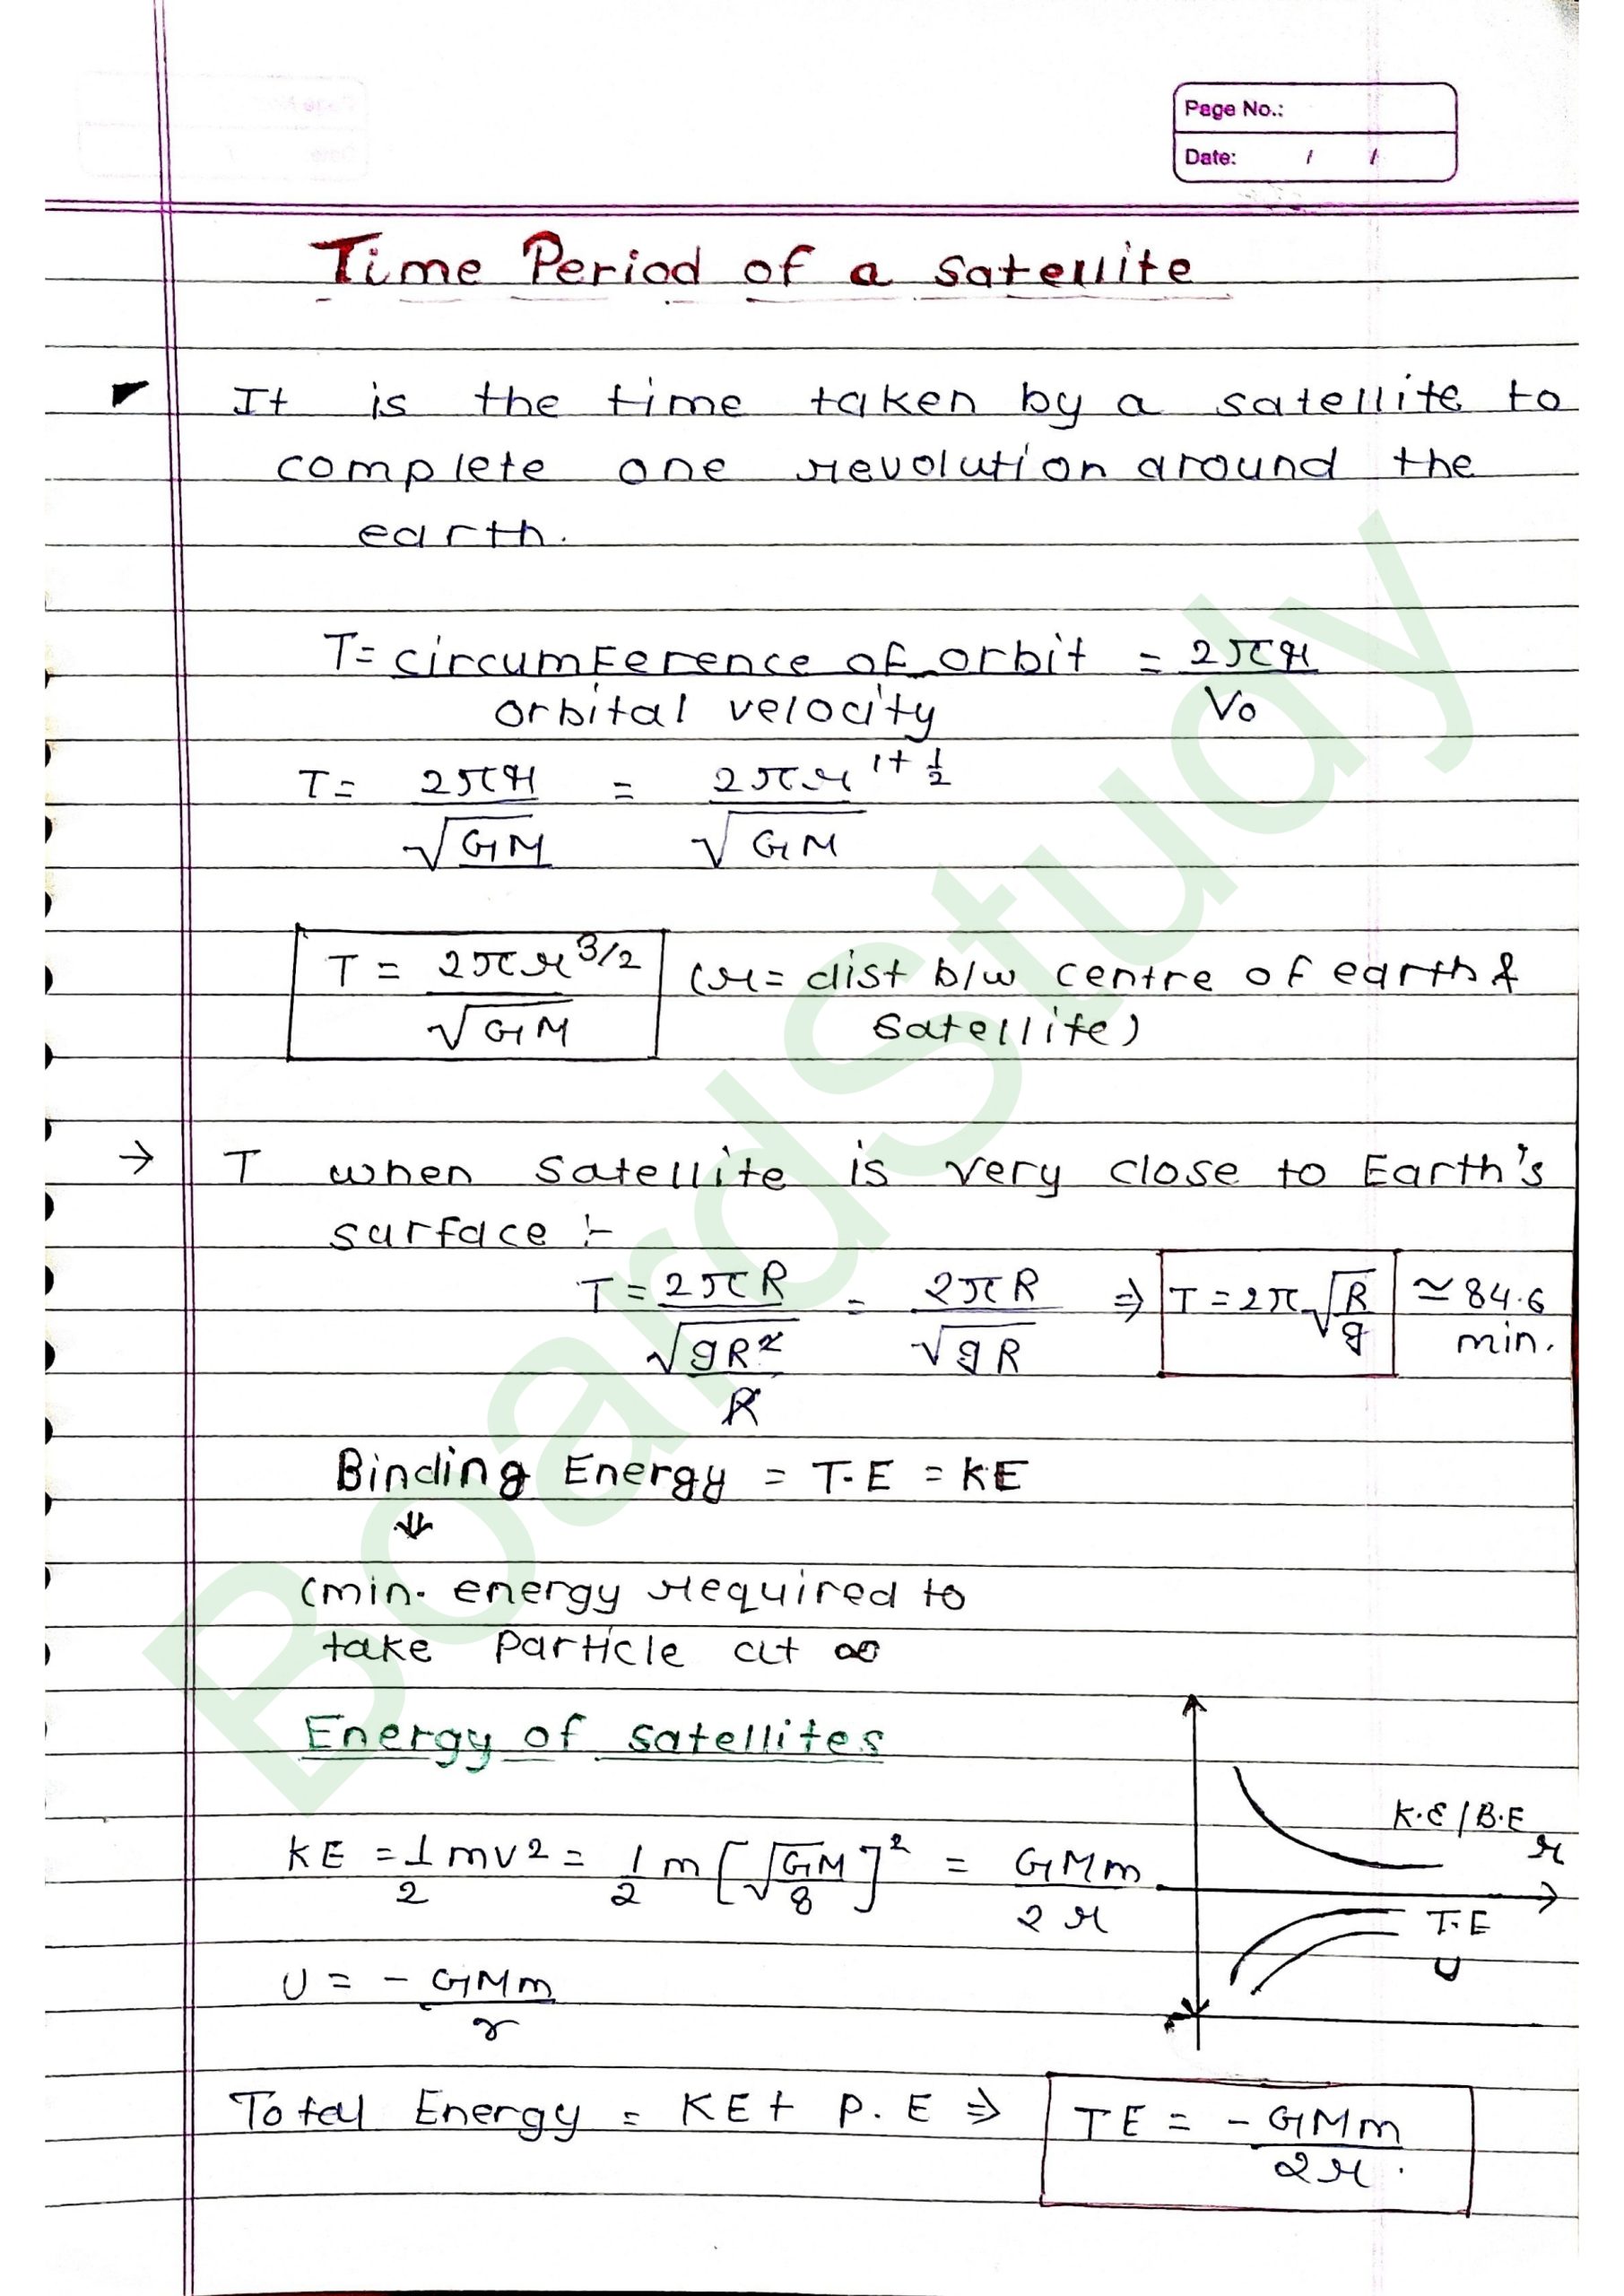 Page No.:
Date: / /
Time Period of a satellite
It is the time taken by a satellite to
complete one revolution around the
earth.
T = circumference of orbit / orbital velocity = 2πr / Vo
T = 2πr / √GM = 2πr^(1+1/2) / √GM
T = 2πr^(3/2) / √GM (r = dist b/w centre of earth &
satellite)
→ T when satellite is very close to Earth's
surface :-
T = 2πR / √(gR²/R) = 2πR / √gR ⇒ T = 2π√(R/g) ≃ 84.6 min.
Binding Energy = T.E = KE
⇓
(min. energy required to
take particle at ∞
Energy of satellites
K.E / B.E
r
KE = 1/2 mv² = 1/2 m [√(GM/8)]² = GMm / 2r
T.E
U
U = - GMm / r
Total Energy = KE + P.E ⇒ TE = - GMm / 2r.
BoardStudy